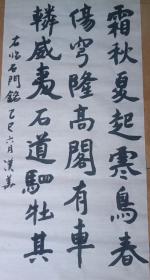 霜秋夏起寒鳥春
傷穹隆高閣有車
轔威夷石道駟牡其
右临石門銘
乙巳六月漢